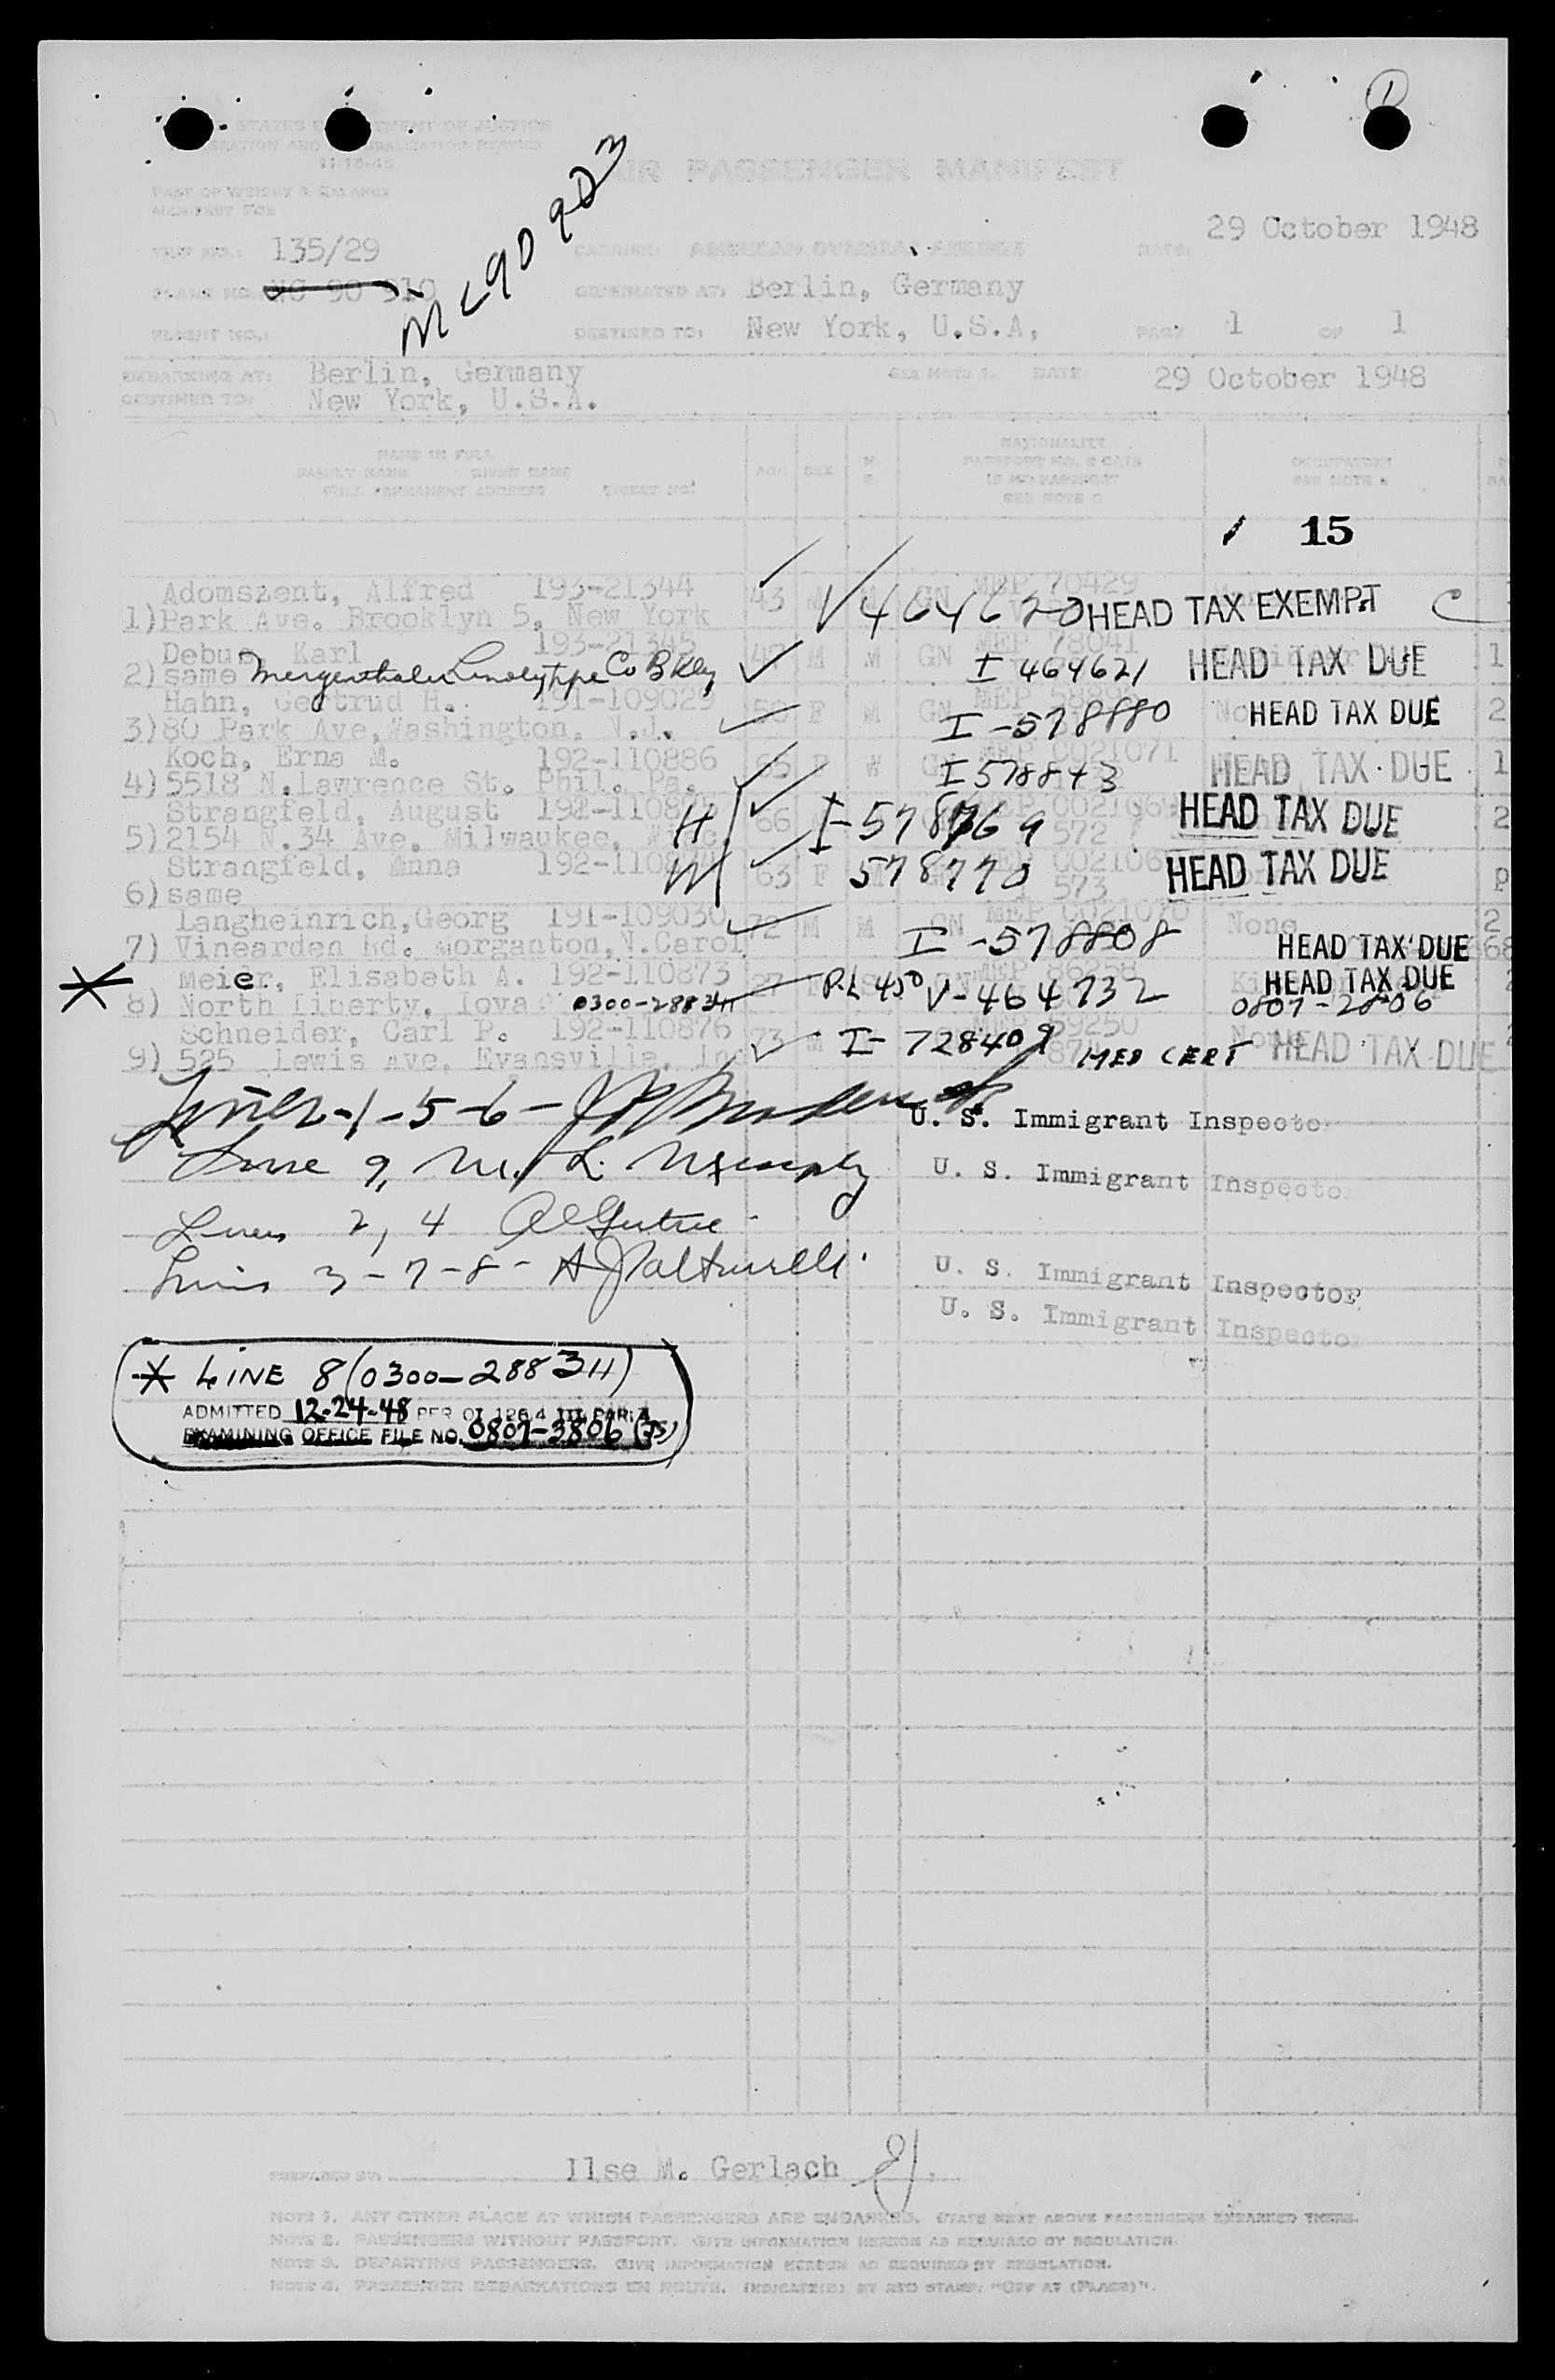 ①
STATES DEPARTMENT OF JUSTICE
IMMIGRATION AND NATURALIZATION SERVICE
11-15-45
AIR PASSENGER MANIFEST
PART OF WEIGHT & BALANCE
MANIFEST FOR
29 October 1948
TRIP NO.: 135/29 CARRIER: AMERICAN OVERSEAS AIRLINES DATE:
PLANE NO. NC 90 910 NC 90 903 ORIGINATED AT: Berlin, Germany
FLIGHT NO.: DESTINED TO: New York, U.S.A. PAGE 1 OF 1
EMBARKING AT: Berlin, Germany SEE NOTE 1. DATE 29 October 1948
DESTINED TO: New York, U.S.A.
NAME IN FULL
FAMILY NAME GIVEN NAME
FULL PERMANENT ADDRESS TICKET NO.
AGE SEX M. S.
NATIONALITY
PASSPORT NO. & DATE
IF NO PASSPORT
SEE NOTE 2
OCCUPATION
15
Adomszent, Alfred 193-21344 43 M M GN MEP 70429
1) Park Ave. Brooklyn 5, New York V464620 HEAD TAX EXEMPT C
Debus, Karl 193-21345 47 M M GN MEP 78041 1
2) same Mergenthaler Linotype Co Bklyn I 464621 HEAD TAX DUE
Hahn, Gertrud H. 191-109029 50 F M GN MEP 2
3) 80 Park Ave, Washington, N.J. I-578880 HEAD TAX DUE
Koch, Erna M. 192-110886 65 F W MEP CO21071 1
4) 5518 N. Lawrence St. Phil. Pa. I 578843 HEAD TAX DUE
Strangfeld, August 192-1108 H 66 I-578769 HEAD TAX DUE 2
5) 2154 N. 34 Ave. Milwaukee, Wisc. 572
Strangfeld, Anna 192-1108 W 63 F 578770 HEAD TAX DUE
6) same 573
Langheinrich, Georg 191-109030 72 M M GN MEP CO21070 None 2
7) Vinearden Rd. Morganton, N.Carol. I-578808 HEAD TAX DUE
* Meier, Elisabeth A. 192-110873 27 P.L 450 V-464732 MEP 86258 HEAD TAX DUE
8) North Liberty, Iova 0300-288311 0807-2806
Schneider, Carl P. 192-110876 73 M I-728409 59250 None
9) 525 Lewis Ave. Evansville, Ind MED CERT HEAD TAX DUE
Lines-1-5-6- U. S. Immigrant Inspector
Line 9, M. L. U. S. Immigrant Inspector
Lines 2, 4
Lines 3-7-8- U. S. Immigrant Inspector
U. S. Immigrant Inspector
* LINE 8 (0300-288311)
ADMITTED 12-24-48 PER OI 126.4 III, PAR. 4
EXAMINING OFFICE FILE NO. 0807-3806 (JS)
PREPARED BY: Ilse M. Gerlach
NOTE 1. ANY OTHER PLACE AT WHICH PASSENGERS ARE EMBARKED. STATE NEXT ABOVE PASSENGERS EMBARKED THERE.
NOTE 2. PASSENGERS WITHOUT PASSPORT. GIVE INFORMATION HEREON AS REQUIRED BY REGULATION.
NOTE 3. DEPARTING PASSENGERS. GIVE INFORMATION HEREON AS REQUIRED BY REGULATION.
NOTE 4. PASSENGER DEBARKATIONS EN ROUTE. INDICATE(D) BY RED STAMP: "OFF AT (PLACE)".